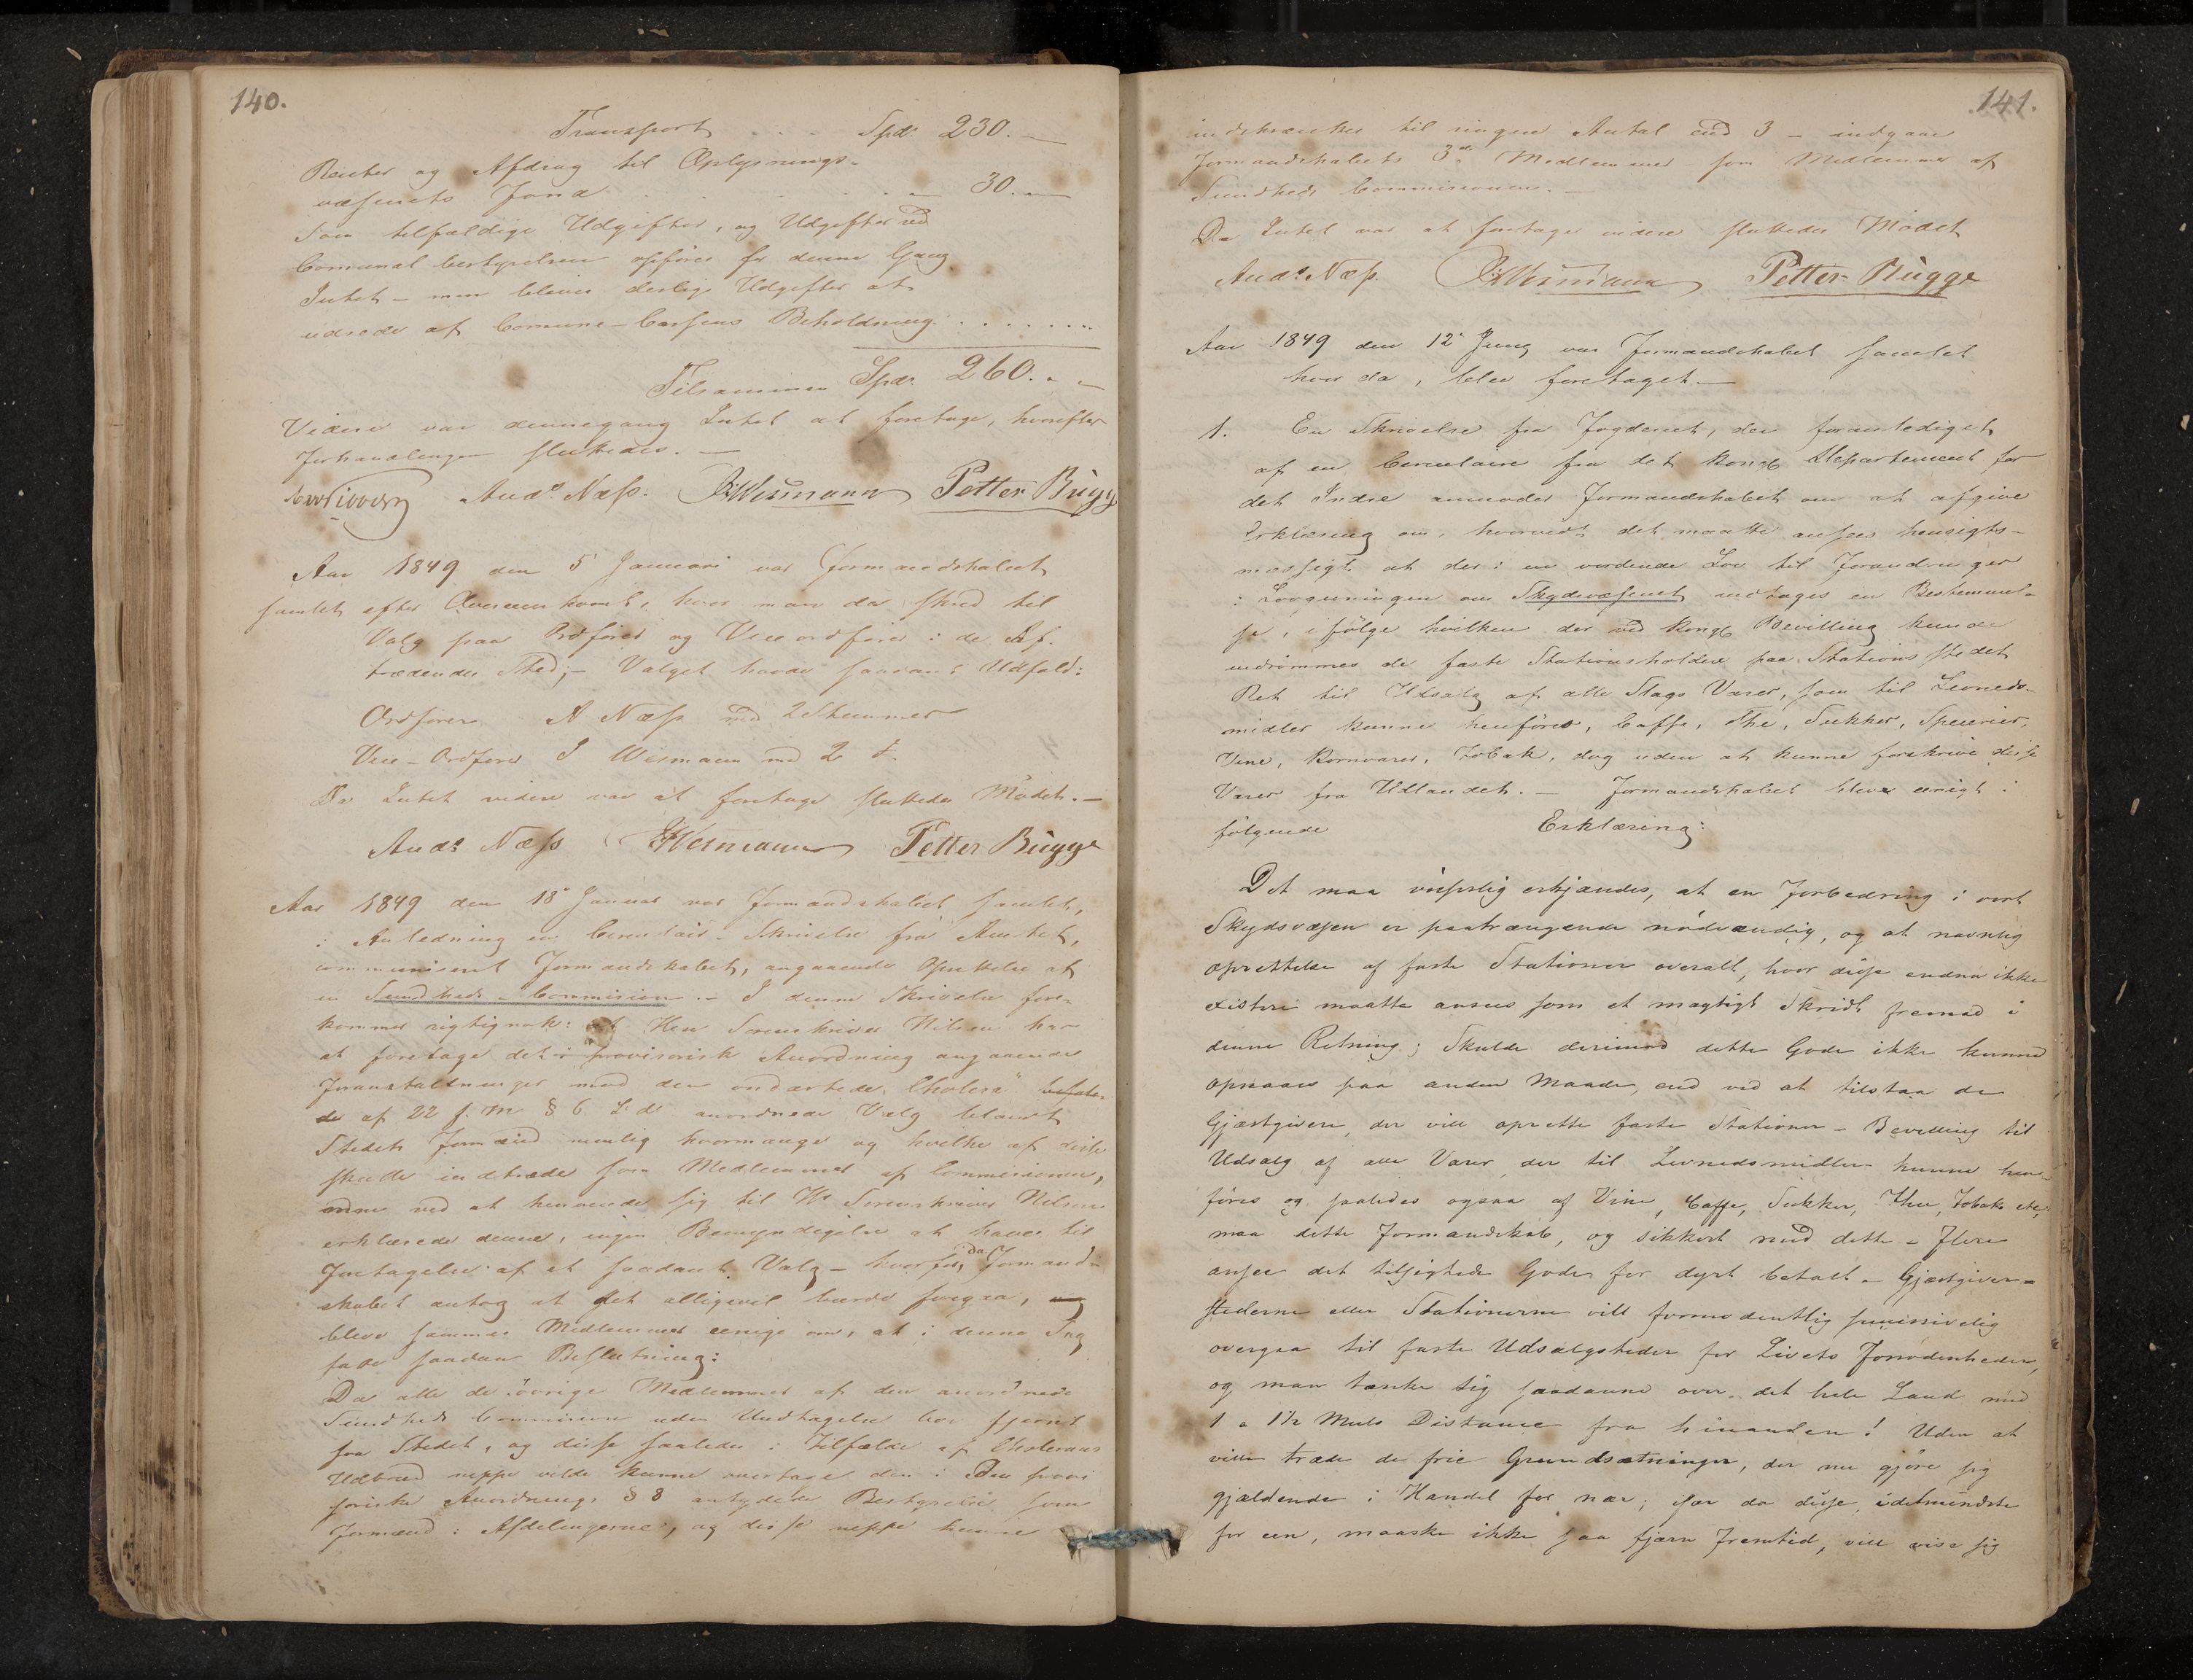 140.
Transport . . . Spd: 230. —
Renter og Afdrag til Oplysnings-
væsenets Fond . . . . . — 30. —
Som tilfældige Udgifter, og Udgifter ved
Comunal bestyrelsen opføres for denne Gang
Intet — men bliver deslige Udgifter at
udrede af Comune-Cassens Beholdning . . . . . . .
Tilsammen Spdr. 260. " —
Videre var dennegang Intet at foretage, hvorefter
Forhandlingen sluttedes. —
Ands Næss. Wesmann Petter Bugge
Aar 1849 den 5 Januari var Formandskabet
samlet efter Overeenkomst, hvor man da skred til
Valg paa Ordfører og Viceordfører i de Af-
trædendes Sted; — Valget havde saadant Udfald:
Ordfører A Næss med 2 Stemmer
Vice-Ordfører J Wesmann med 2 d.
Da Intet videre var at foretage sluttedes Mødet. —
Ands Næss Wesmann Petter Bugge
Aar 1849 den 18 Januar var Formandskabet samlet,
i Anledning en Circulair-Skrivelse fra Amtet,
communiseret Formandskabet, angaaende Oprettelse af
en Sundheds-Commision. — I denne Skrivelse fore-
kommer rigtignok: at Herr Sorenskriver Nilsen har
at foretage det i provisorisk Anordning angaaende
Foranstaltninger mod den ondartede "Cholera"
de af 22 f. M § 6 L. d. anordnede Valg blandt
Stedets Formænd nemlig hvormange og hvilke af disse
skulde indtræde som Medlemmer af Commisionen,
men ved at henvende sig til Hr Sorenskriver Nilsen
erklærede denne, ingen Bemyndigelse at have til
Foretagelse af et saadant Valg — hvorfor, da Formand-
skabet antog at det alligevel burde foregaa,
bleve sammes Medlemmer eenige om, at i denne Sag
fatte saadan Beslutning:
Da alle de øvrige Medlemmer af den anordnede
Sundheds Commision uden Undtagelse boe fjernt
fra Stedet, og disse saaledes i Tilfælde af Choleraens
Udbrud neppe vilde kunne overtage den i den provi
soriske Anordnings § 8 antydede Bestyrelse som
Formænd i Afdelingerne, og disse neppe kunne
141.
indskrænkes til ringere Antal end 3 — indgaaer
Formandskabets 3de Medlemmer som Medlemmer af
Sundheds Commissionen. —
Da Intet var at foretage videre sluttedes Mødet
Ands Næss. Wesmann Petter Bugge
Aar 1849 den 12 Juny var Formandskabet samlet
hvor da, blev foretaget —
1. En Skrivelse fra Fogderiet, der foranlediget
af en Circulaire fra det kongl Departement for
det Indre anmoder Formandskabet om at afgive
Erklæring om, hvorvidt det maatte ansees hensigts-
mæssigt at der i en vordende Lov til Forandringer
i Lovgivningen om Skydsvæsenet indtages en Bestemmel-
se, ifølge hvilken der ved kongl Bevilling kunde
indrømmes de faste Stationsholdere paa Stationsstedet
Ret til Udsalg af alle Slags Varer, som til Levneds-
midler kunne henføres, Caffe, The, Sukker, Specerier,
Vine, Kornvarer, Tobak, dog uden at kunne forskrive disse
Varer fra Udlandet. — Formandskabet blever eenigt i
følgende Erklæring:
Det maa visselig erkjendes, at en Forbedring i vort
Skydsvæsen er paatrængende nødvændig, og at navnlig
oprettelse af faste Stationer overalt, hvor disse endnu ikke
existere maatte ansees som et mægtigt Skridt fremad i
denne Retning; Skulde derimod dette Gode ikke kunne
opnaaes paa anden Maade, end ved at tilstaa de
Gjæstgivere, der vill oprette faste Stationer — Bevilling til
Udsalg af alle Varer, der til Levnedsmidler kunne hen-
føres og saaledes ogsaa af Vine, Caffe, Sukker, Thee, Tobak etc,
maa dette Formandskab, og sikkert med dette — Flere
ansee det tilsigtede Gode for dyrt betalt. — Gjæstgiver-
stederne eller Stationerne vill formodentlig successivelig
overgaa til faste Udsalgsteder for Livets Fornødenheder,
og man tænke sig saadanne over det hele Land med
1 a 1½ Miils Distance fra hinanden! Uden at
ville træde de frie Grundsætninger, der nu gjøre sig
gjældende i Handel for nær; især da disse, idetmindste
for een, maaske ikke saa fjærn Fremtid, vill vise sig